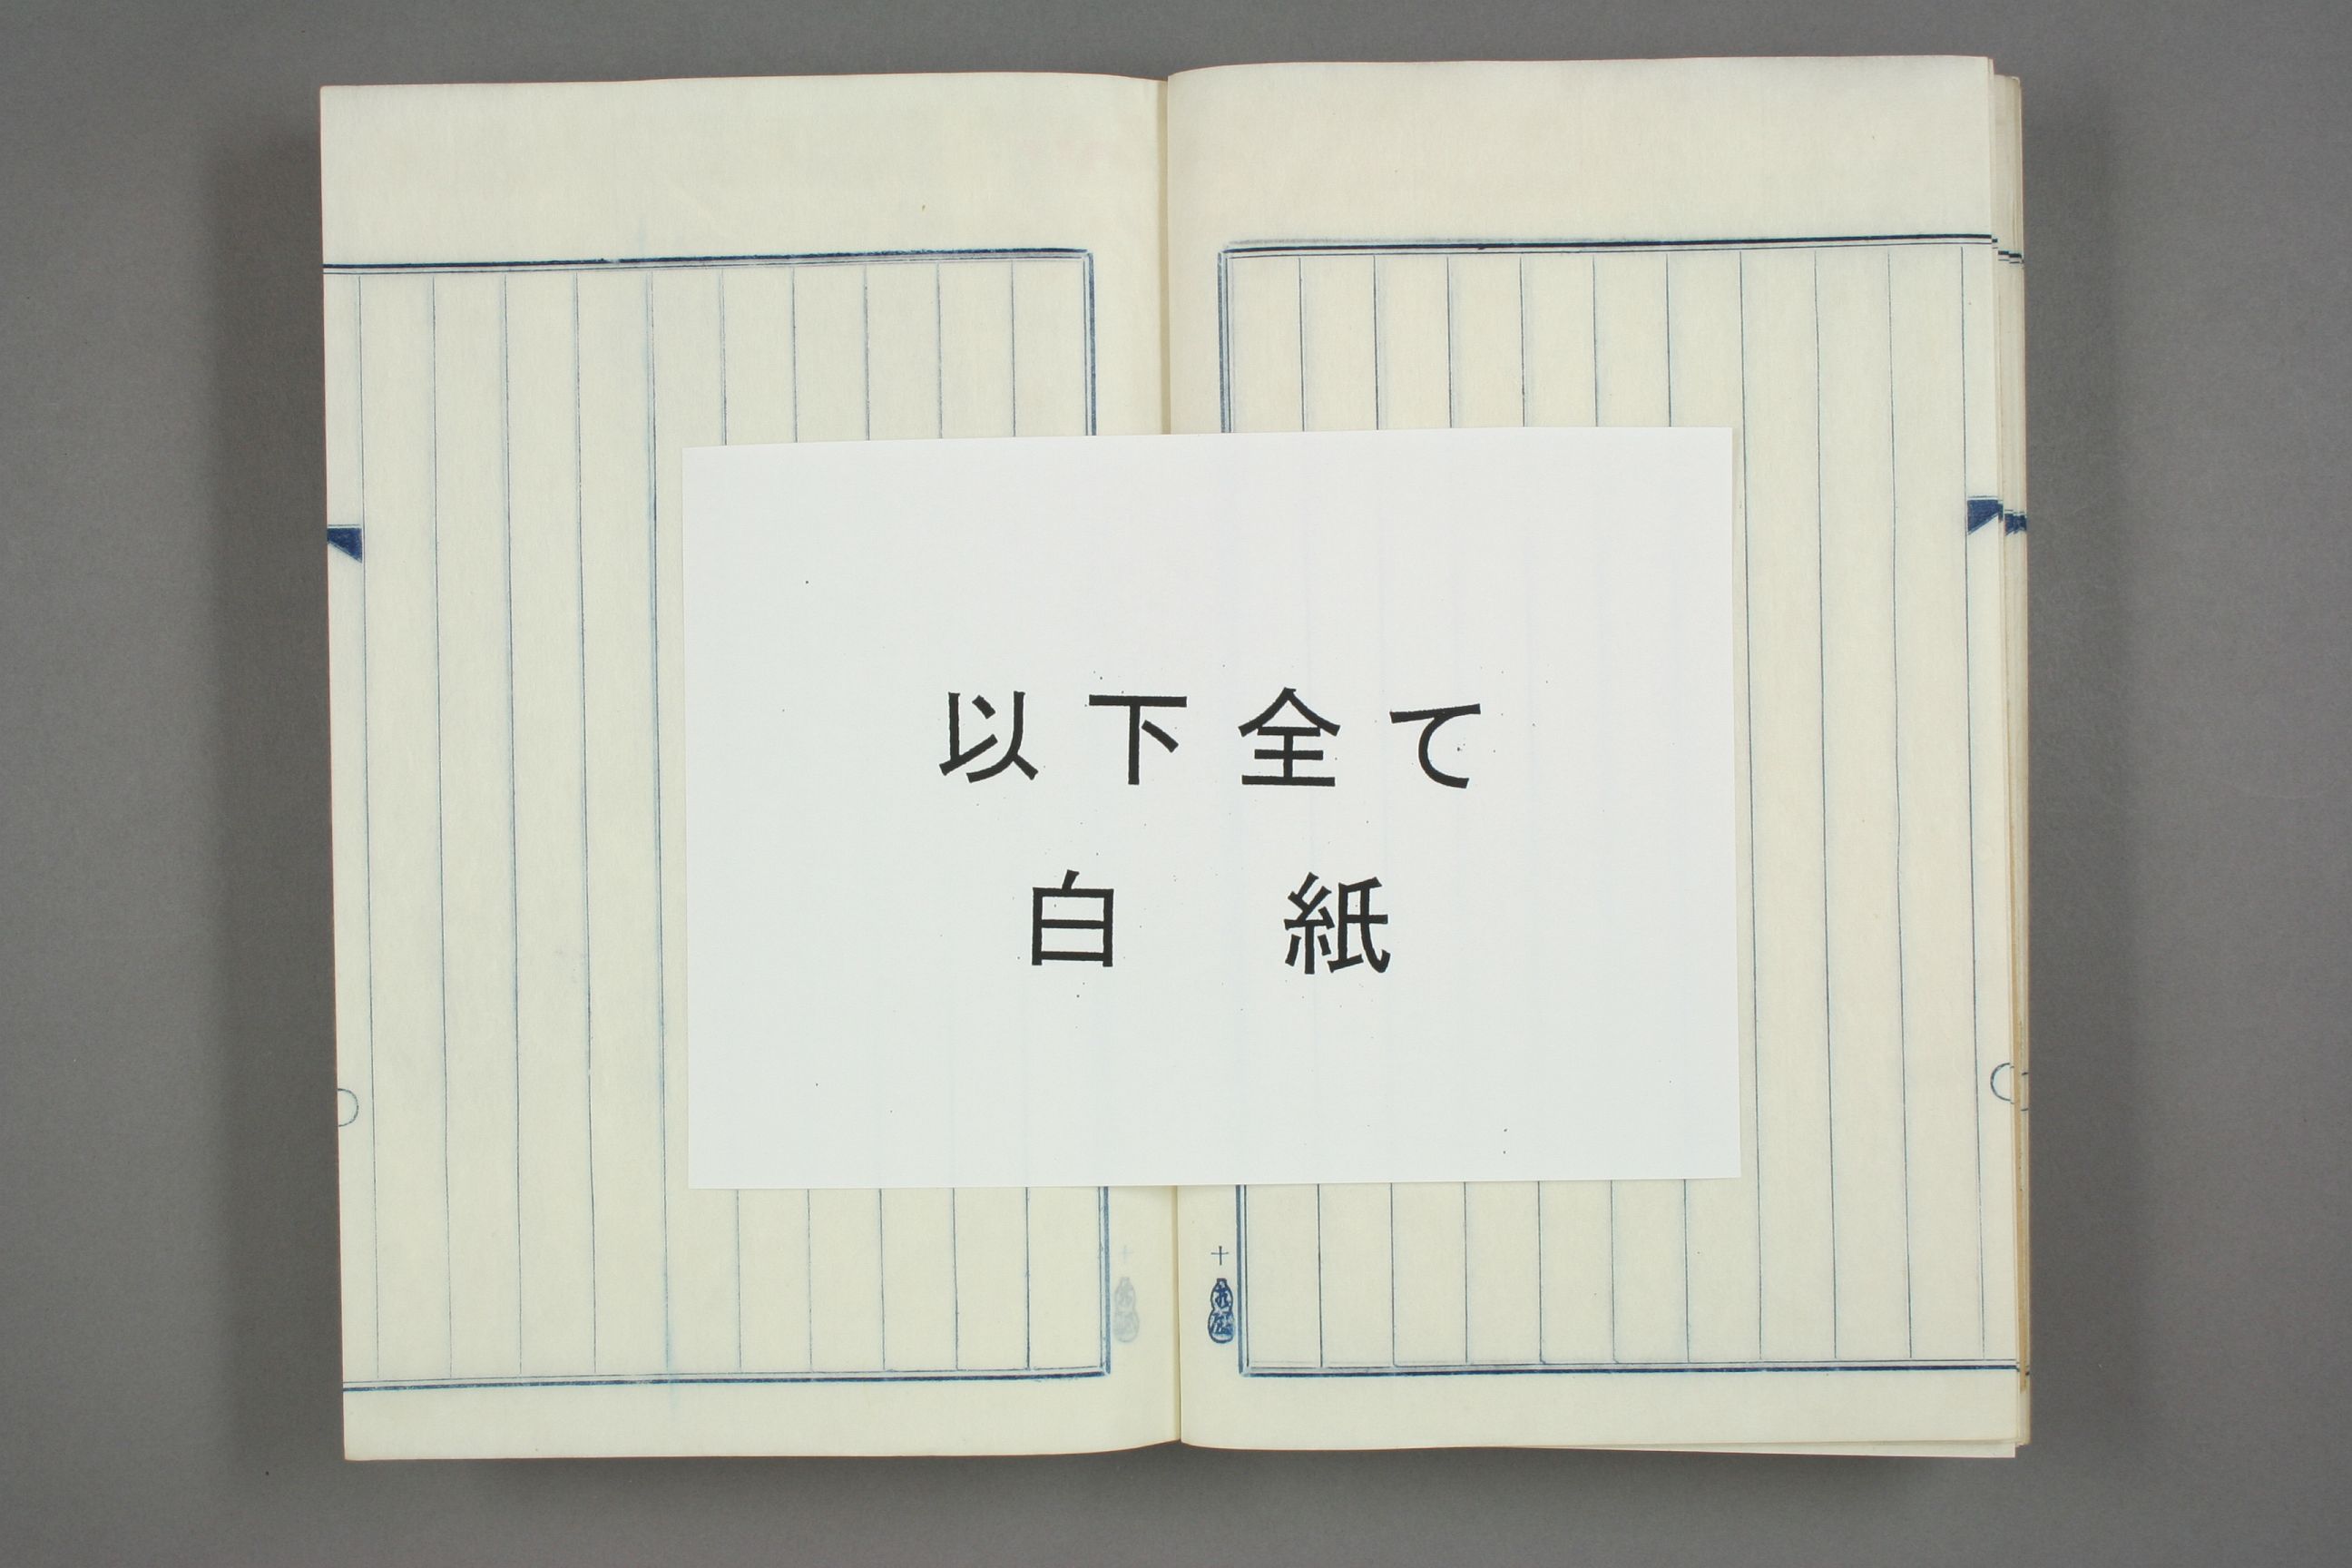 以下全て
白紙
十